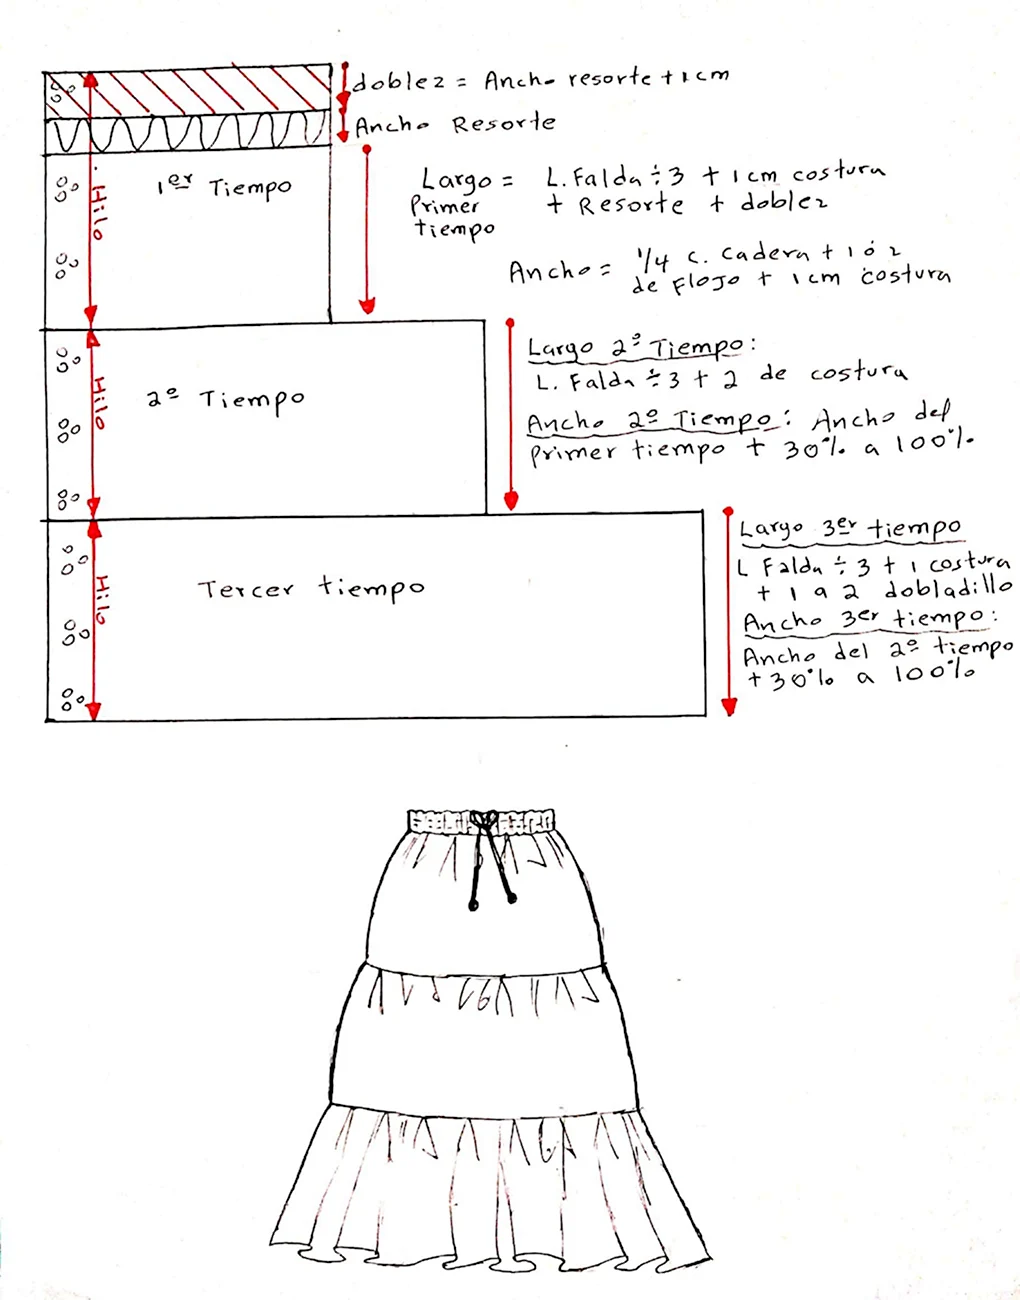 doblez = Ancho resorte + 1 cm
Ancho Resorte
1er Tiempo
Hilo
Largo = L. Falda ÷ 3 + 1 cm costura
Primer + Resorte + doblez
tiempo
Ancho = 1/4 c. cadera + 1 ó 2
de Flojo + 1 cm costura
2º Tiempo
Hilo
Largo 2º Tiempo:
L. Falda ÷ 3 + 2 de costura
Ancho 2º Tiempo: Ancho del
primer tiempo + 30% a 100%
Tercer tiempo
Hilo
Largo 3er tiempo
L Falda ÷ 3 + 1 costura
+ 1 a 2 dobladillo
Ancho 3er tiempo:
Ancho del 2º tiempo
+ 30% a 100%